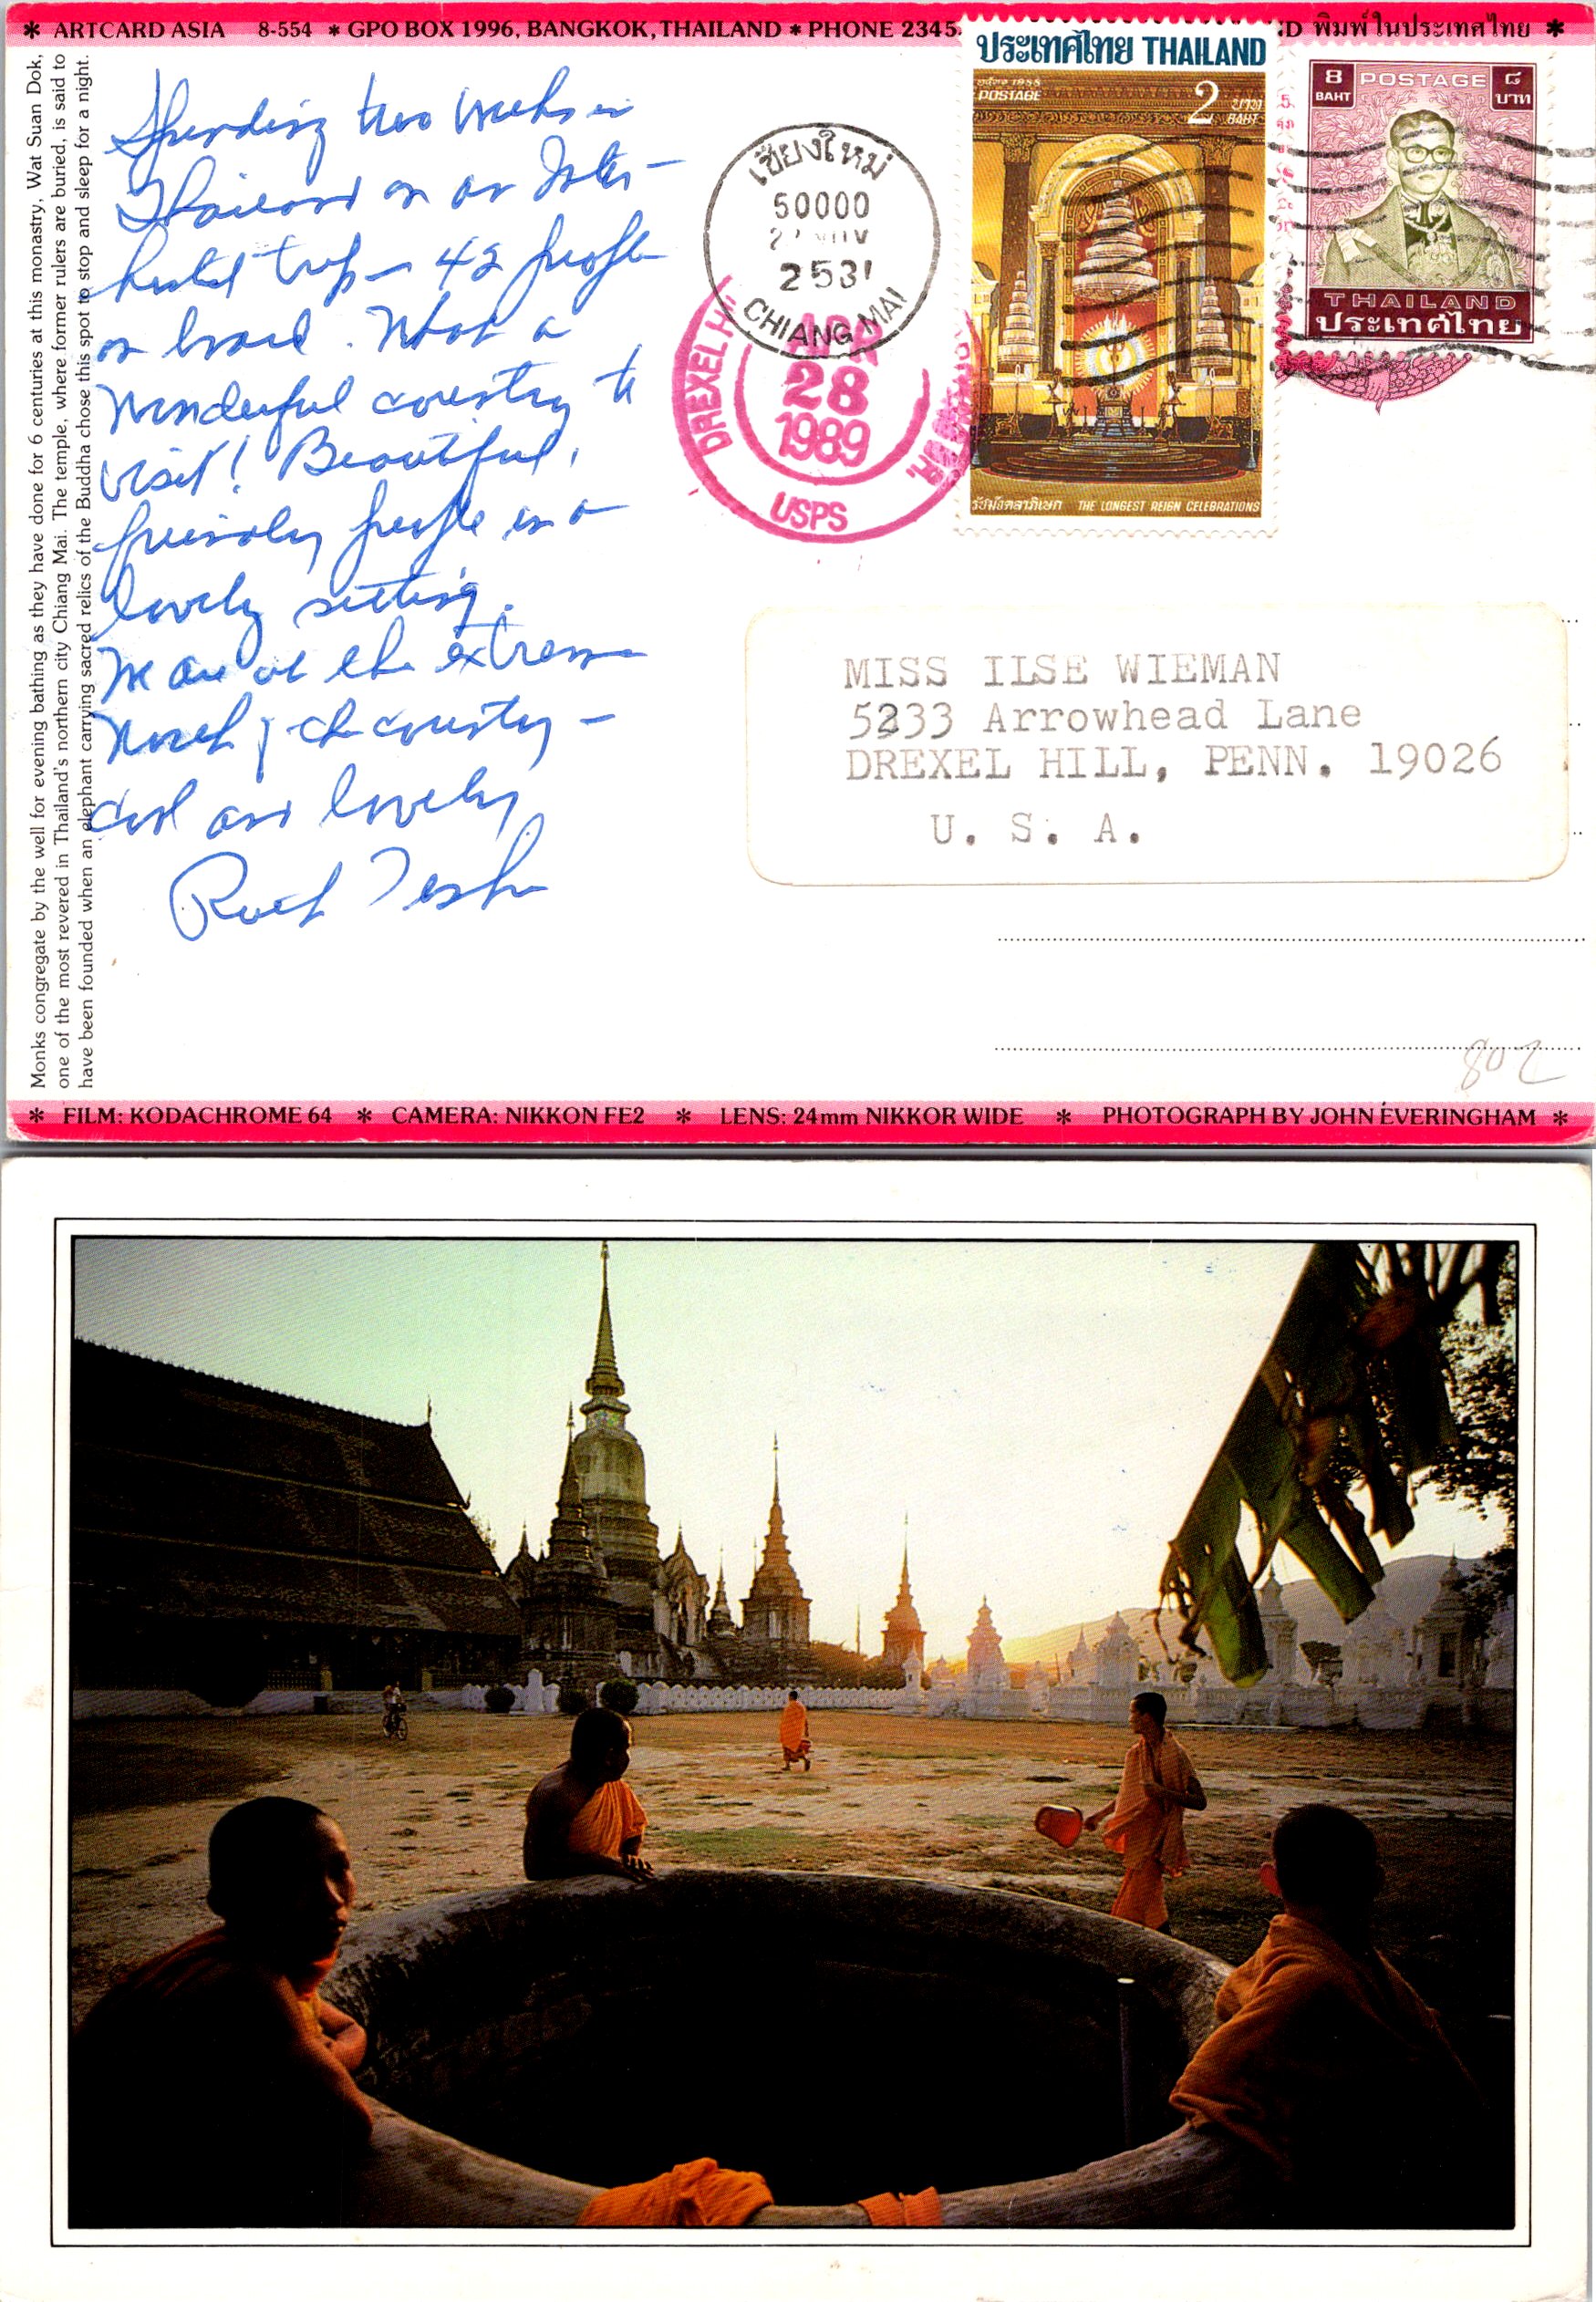 * ARTCARD ASIA 8-554 * GPO BOX 1996, BANGKOK, THAILAND * PHONE 2345 D พิมพ์ในประเทศไทย *
Monks congregate by the well for evening bathing as they have done for 6 centuries at this monastery, Wat Suan Dok,
one of the most revered in Thailand's northern city Chiang Mai. The temple, where former rulers are buried, is said to
have been founded when an elephant carrying sacred relics of the Buddha chose this spot to stop and sleep for a night.
Spending two weeks in
Thailand on an Inter-
hostel trip - 42 people
on board. What a
wonderful country to
visit! Beautiful,
friendly people in a
lovely setting.
We are at the extreme
North of the country -
cool and lovely
Ruth
เชียงใหม่
50000
NOV
2531
CHIANG MAI
DREXEL HI
28
1989
USPS
ประเทศไทย THAILAND
1988
POSTAGE
2 บาท
BAHT
รัชมังคลาภิเษก THE LONGEST REIGN CELEBRATIONS
8 POSTAGE ๘
BAHT บาท
THAILAND
ประเทศไทย
MISS ILSE WIEMAN
5233 Arrowhead Lane
DREXEL HILL, PENN. 19026
U. S. A.
802
* FILM: KODACHROME 64 * CAMERA: NIKKON FE2 * LENS: 24mm NIKKOR WIDE * PHOTOGRAPH BY JOHN EVERINGHAM *